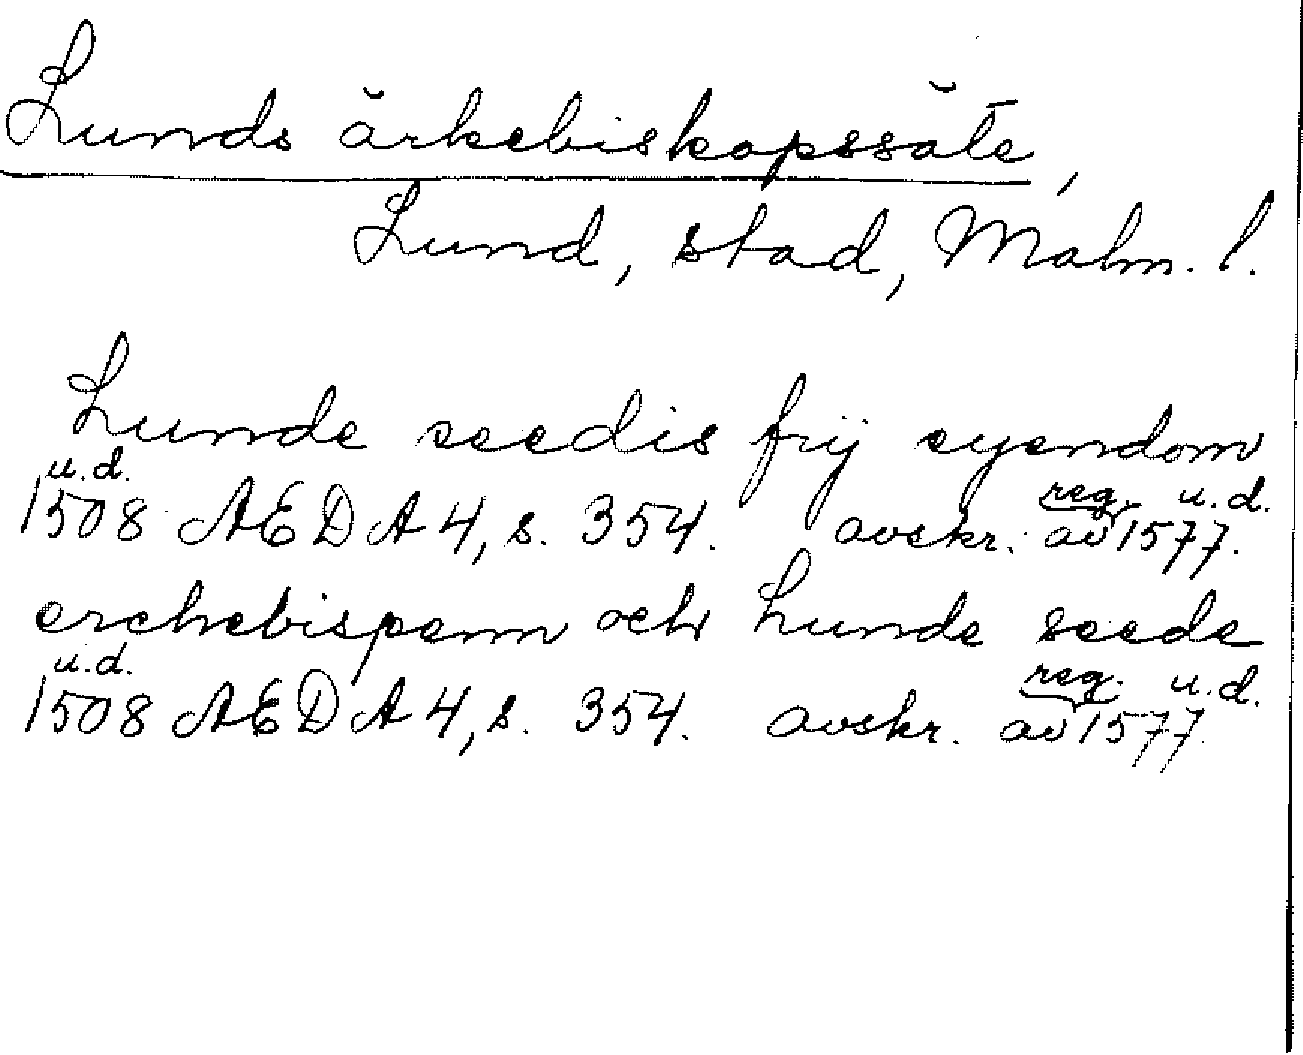 Lunds ärkebiskopssäte,
Lund, stad, Malm. l.
Lunde seedis frij eyendom
u.d. reg. u.d.
1508 AEDA 4, s. 354. avskr. av 1577.
erchebispenn och Lunde seede
u.d. reg. u.d.
1508 AEDA 4, s. 354. avskr. av 1577.